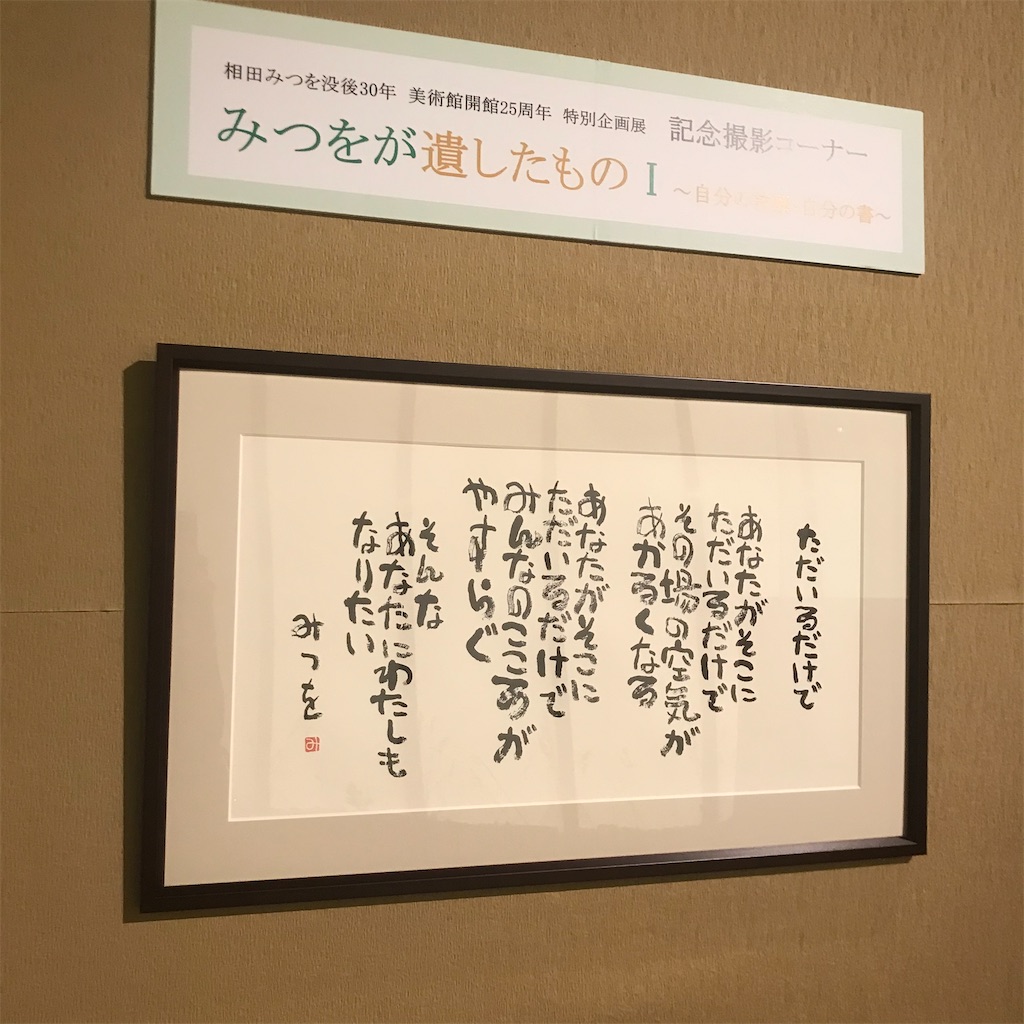 相田みつを没後30年 美術館開館25周年 特別企画展 記念撮影コーナー
みつをが遺したもの Ⅰ ~自分の言葉・自分の書~
ただいるだけで
あなたがそこに
ただいるだけで
その場の空気が
あかるくなる
あなたがそこに
ただいるだけで
みんなのこころが
やすらぐ
そんな
あなたにわたしも
なりたい
みつを
み